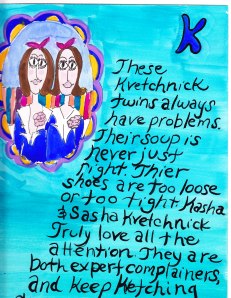 K
These
Kvetchnick
twins always
have problems.
Their soup is
never just
right. Thier
shoes are too loose
or too tight Masha
& Sasha Kvetchnick
Truly love all the
attention. They are
both expert complainers,
and Keep Kvetching